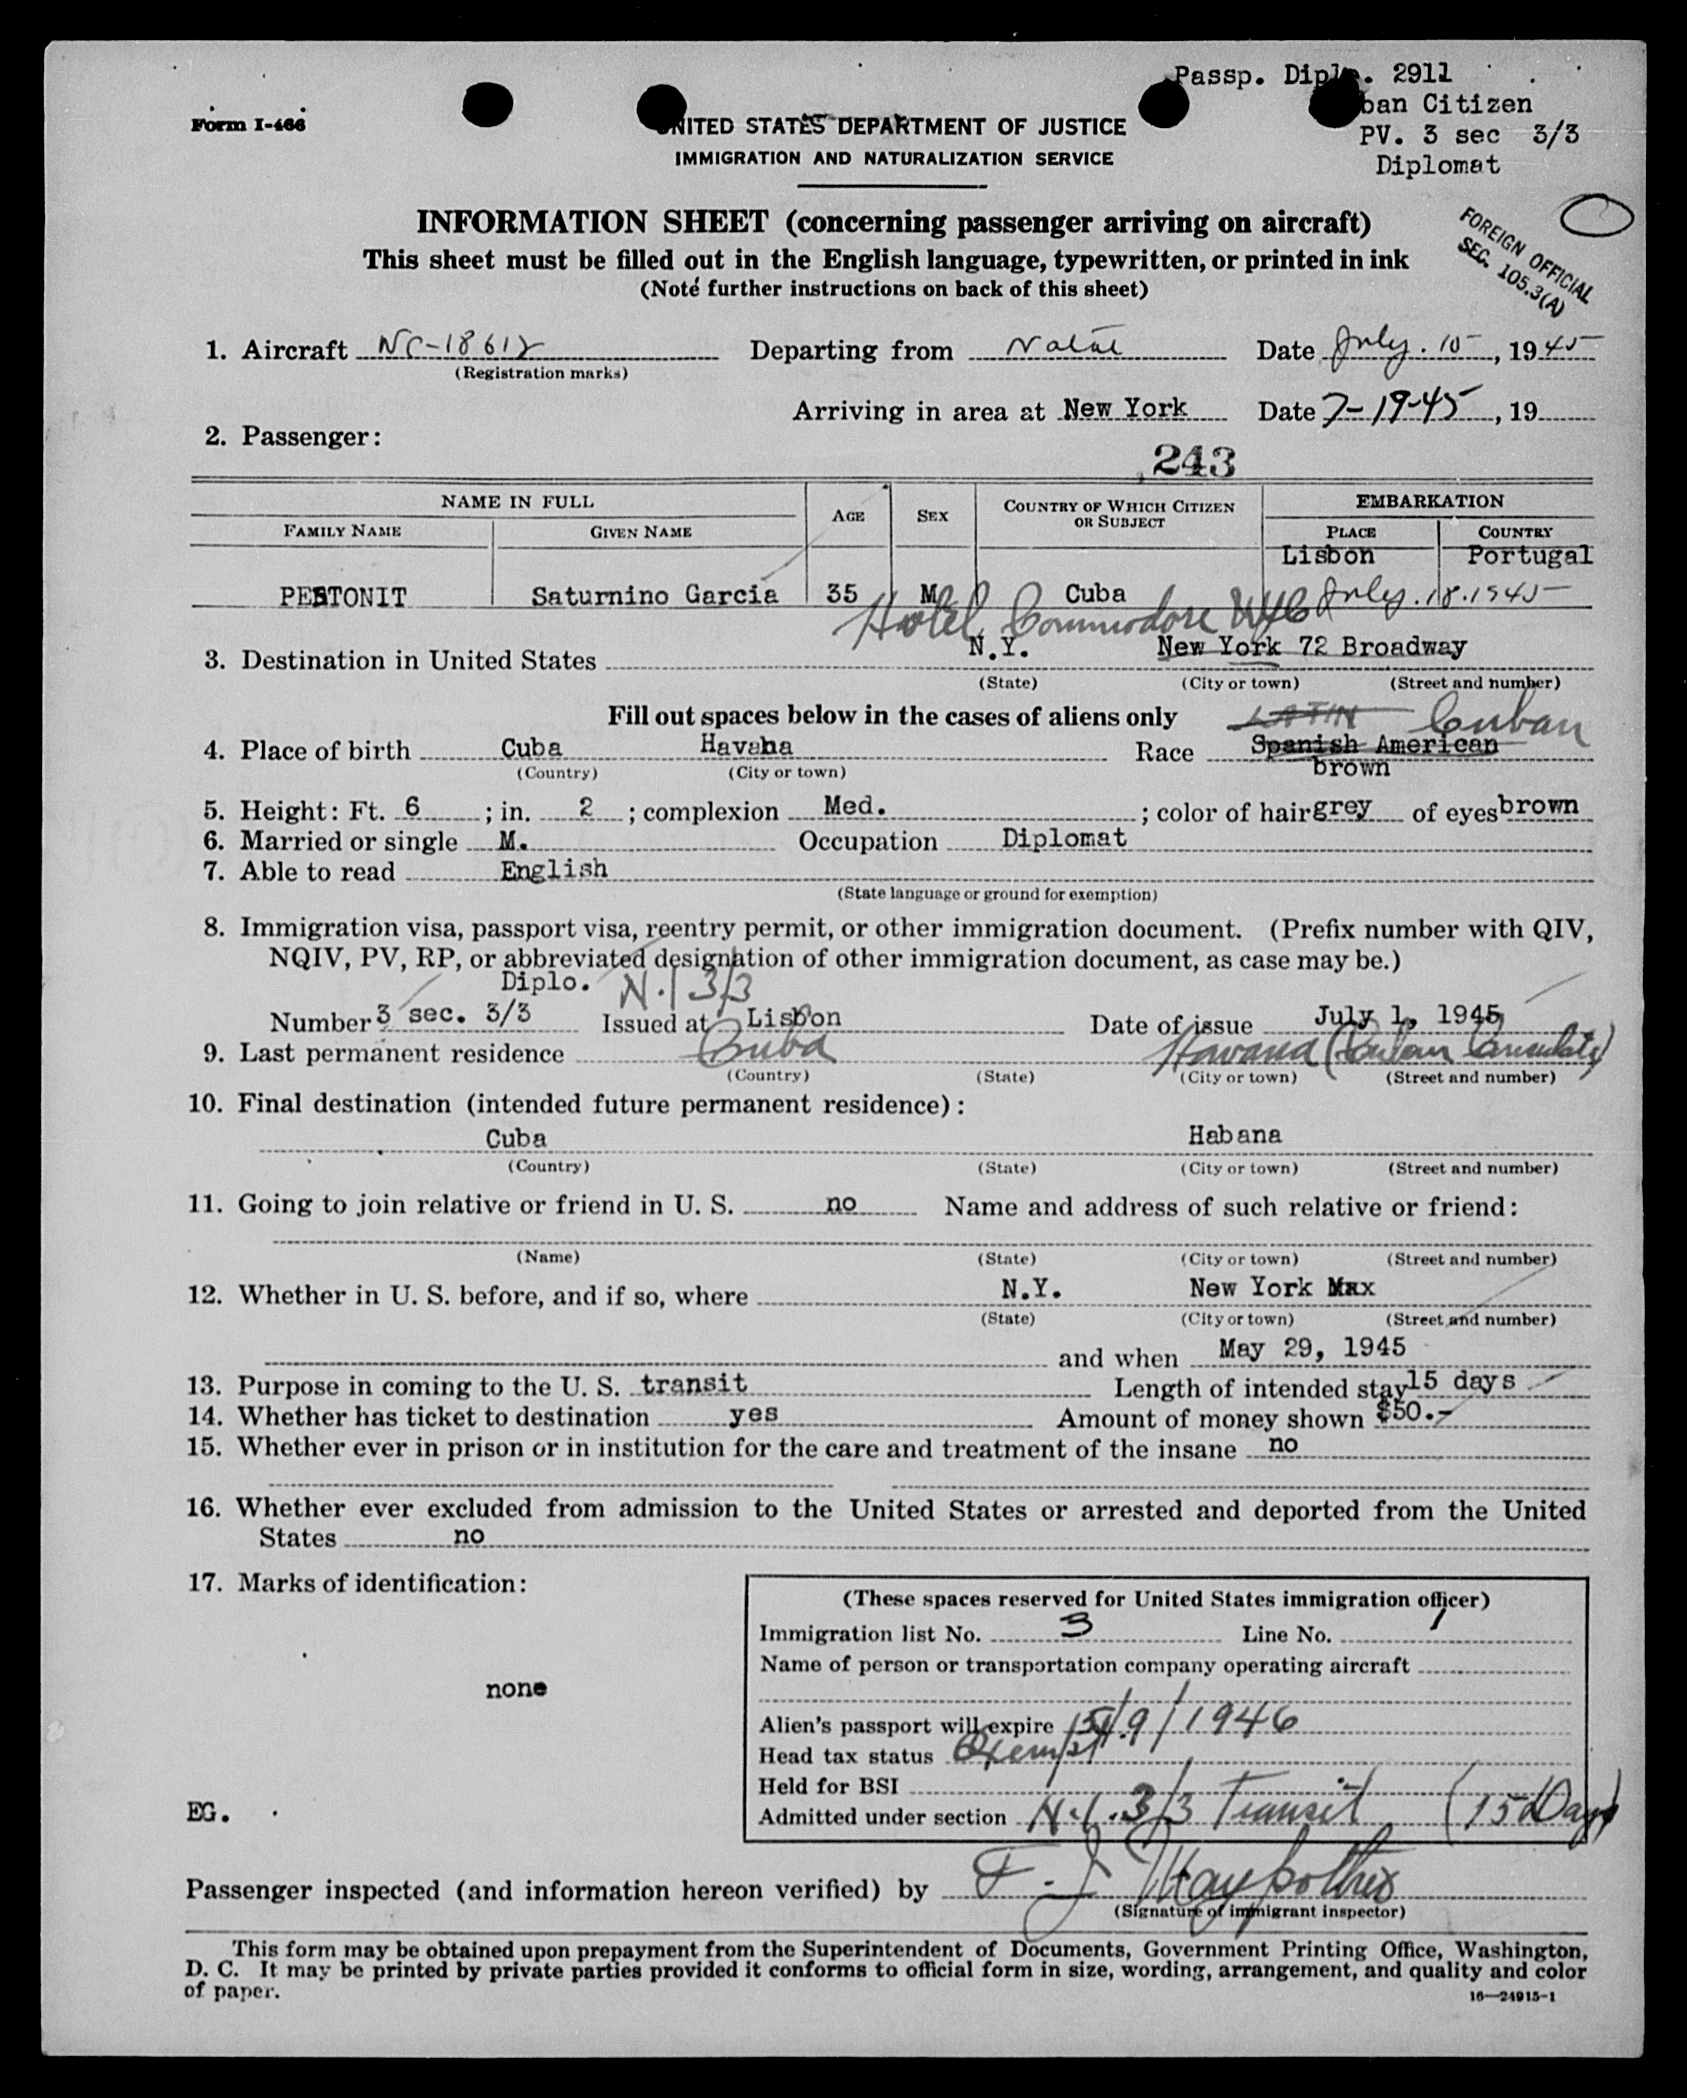 Passp. Dipl. 2911
ban Citizen
Form I-466
UNITED STATES DEPARTMENT OF JUSTICE
PV. 3 sec 3/3
IMMIGRATION AND NATURALIZATION SERVICE
Diplomat
INFORMATION SHEET (concerning passenger arriving on aircraft)
FOREIGN OFFICIAL
SEC. 105.3(A)
This sheet must be filled out in the English language, typewritten, or printed in ink
(Note further instructions on back of this sheet)
1. Aircraft NC-18612 Departing from Natal Date July. 15, 1945
(Registration marks)
Arriving in area at New York Date 7-19-45, 19
2. Passenger:
243
NAME IN FULL AGE SEX COUNTRY OF WHICH CITIZEN OR SUBJECT EMBARKATION
FAMILY NAME GIVEN NAME PLACE COUNTRY
Lisbon Portugal
PESTONIT Saturnino Garcia 35 M Cuba July. 18. 1945
Hotel Commodore NYC
3. Destination in United States N.Y. New York 72 Broadway
(State) (City or town) (Street and number)
Fill out spaces below in the cases of aliens only LATIN Cuban
4. Place of birth Cuba Havana Race Spanish American
(Country) (City or town) brown
5. Height: Ft. 6; in. 2; complexion Med.; color of hair grey of eyes brown
6. Married or single M. Occupation Diplomat
7. Able to read English
(State language or ground for exemption)
8. Immigration visa, passport visa, reentry permit, or other immigration document. (Prefix number with QIV,
NQIV, PV, RP, or abbreviated designation of other immigration document, as case may be.)
Diplo. N.I 3/3
Number 3 sec. 3/3 Issued at Lisbon Date of issue July 1, 1945
9. Last permanent residence Cuba Havana (Cuban Consulate)
(Country) (State) (City or town) (Street and number)
10. Final destination (intended future permanent residence):
Cuba Habana
(Country) (State) (City or town) (Street and number)
11. Going to join relative or friend in U. S. no Name and address of such relative or friend:
(Name) (State) (City or town) (Street and number)
12. Whether in U. S. before, and if so, where N.Y. New York Max
(State) (City or town) (Street and number)
and when May 29, 1945
13. Purpose in coming to the U. S. transit Length of intended stay 15 days
14. Whether has ticket to destination yes Amount of money shown $50.-
15. Whether ever in prison or in institution for the care and treatment of the insane no
16. Whether ever excluded from admission to the United States or arrested and deported from the United
States no
17. Marks of identification:
none
EG.
(These spaces reserved for United States immigration officer)
Immigration list No. 3 Line No. 1
Name of person or transportation company operating aircraft
Alien's passport will expire /9/1946
Head tax status Exempt
Held for BSI
Admitted under section N.I. 3/3 Transit (15 Days)
Passenger inspected (and information hereon verified) by F. J.
(Signature of immigrant inspector)
This form may be obtained upon prepayment from the Superintendent of Documents, Government Printing Office, Washington,
D. C. It may be printed by private parties provided it conforms to official form in size, wording, arrangement, and quality and color
of paper.
16—24915-1